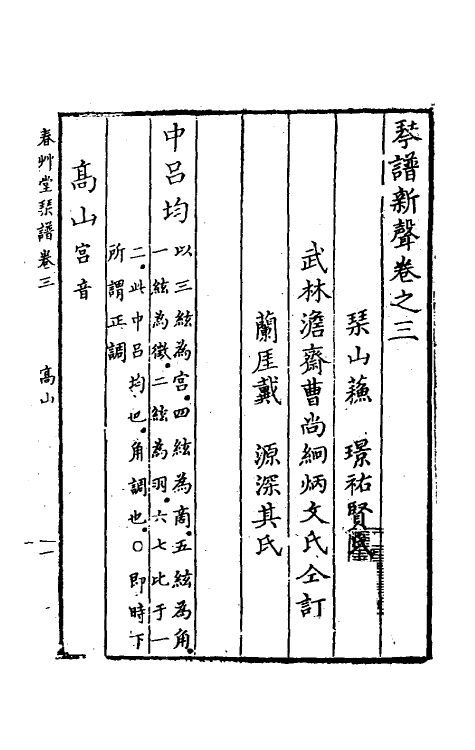 琴譜新聲卷之三
琹山蘓　璟祐賢氏
武林澹齋曹尚絅炳文氏仝訂
蘭厓戴　源深其氏
中呂均
以三絃為宮四絃為商五絃為角
一絃為徵二絃為羽六七比于一
二此中呂均也角調也○即時下
所謂正調
高山宮音
春艸堂琹譜卷三
高山
一